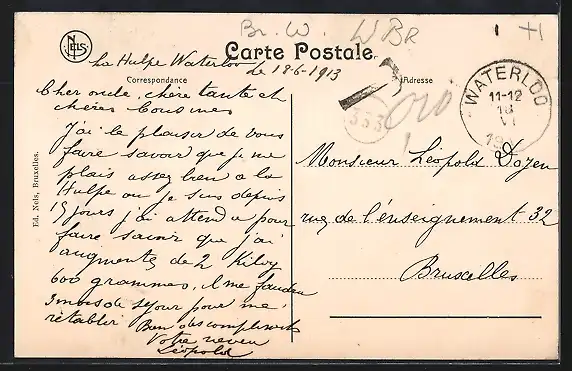 NELS
Br. W. WBR
La Hulpe Waterloo
Carte Postale
le 18-6-1913
Correspondance
Adresse
Cher oncle, chère tante et
chères Cousines
J'ai le plaisir de vous
faire savoir que je me
plais assez bien à la
Hulpe où je suis depuis
15 jours j'ai attendu pour
faire savoir que j'ai
augmenté de 2 Kilog
600 grammes, il me faudra
3 mois de séjour pour me
rétablir Bien des compliments
Votre neveu
Léopold
Ed. Nels, Bruxelles.
333
WATERLOO
11-12
18
VI
Monsieur Léopold Doyen
rue de l'enseignement 32
Bruxelles